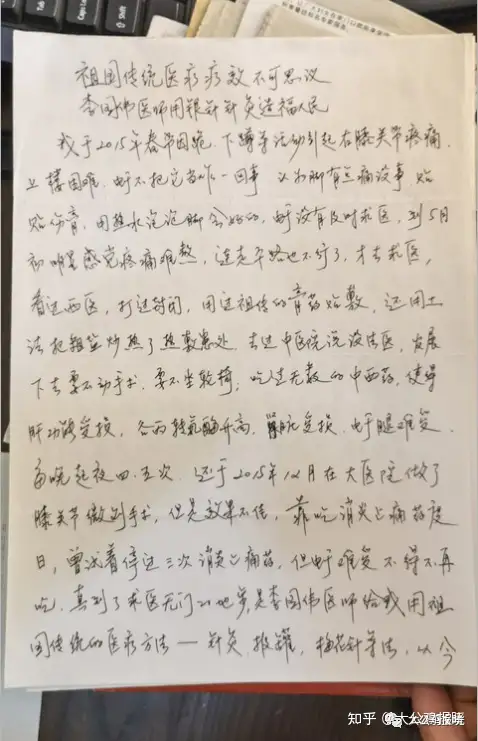 祖国传统医疗疗效不可思议
李国伟医师用银针针灸造福人民
我于2015年春节因跪、下蹲等活动引起右膝关节疼痛、
上楼困难、也不把它当作一回事 以为脚有点痛没事 贴
贴伤膏,用热水泡泡脚会好的,也没有及时求医,到5月
初明显感觉疼痛难熬,连走平路也不行了,才去求医,
看过西医,打过封闭,用过祖传的膏药贴敷,还用土
法把粗盐炒热了热敷患处,去过中医院说没法医,发展
下去要不动手术,要不坐轮椅,吃过无数的中西药,使得
肝功能受损,谷丙转氨酶升高, 受损,腿难受,
每晚起夜四、五次,还于2015年12月在大医院做了
膝关节微创手术,但是效果不佳,靠吃消炎止痛药度
日,曾试着停过三次消炎止痛药,但 难受不得不再
吃,真到了求医无门 地步,是李国伟医师给我用祖
国传统的医疗方法——针灸、拔罐,梅花针等法,以今
知乎 @大公鸡报晓
大公鸡报晓